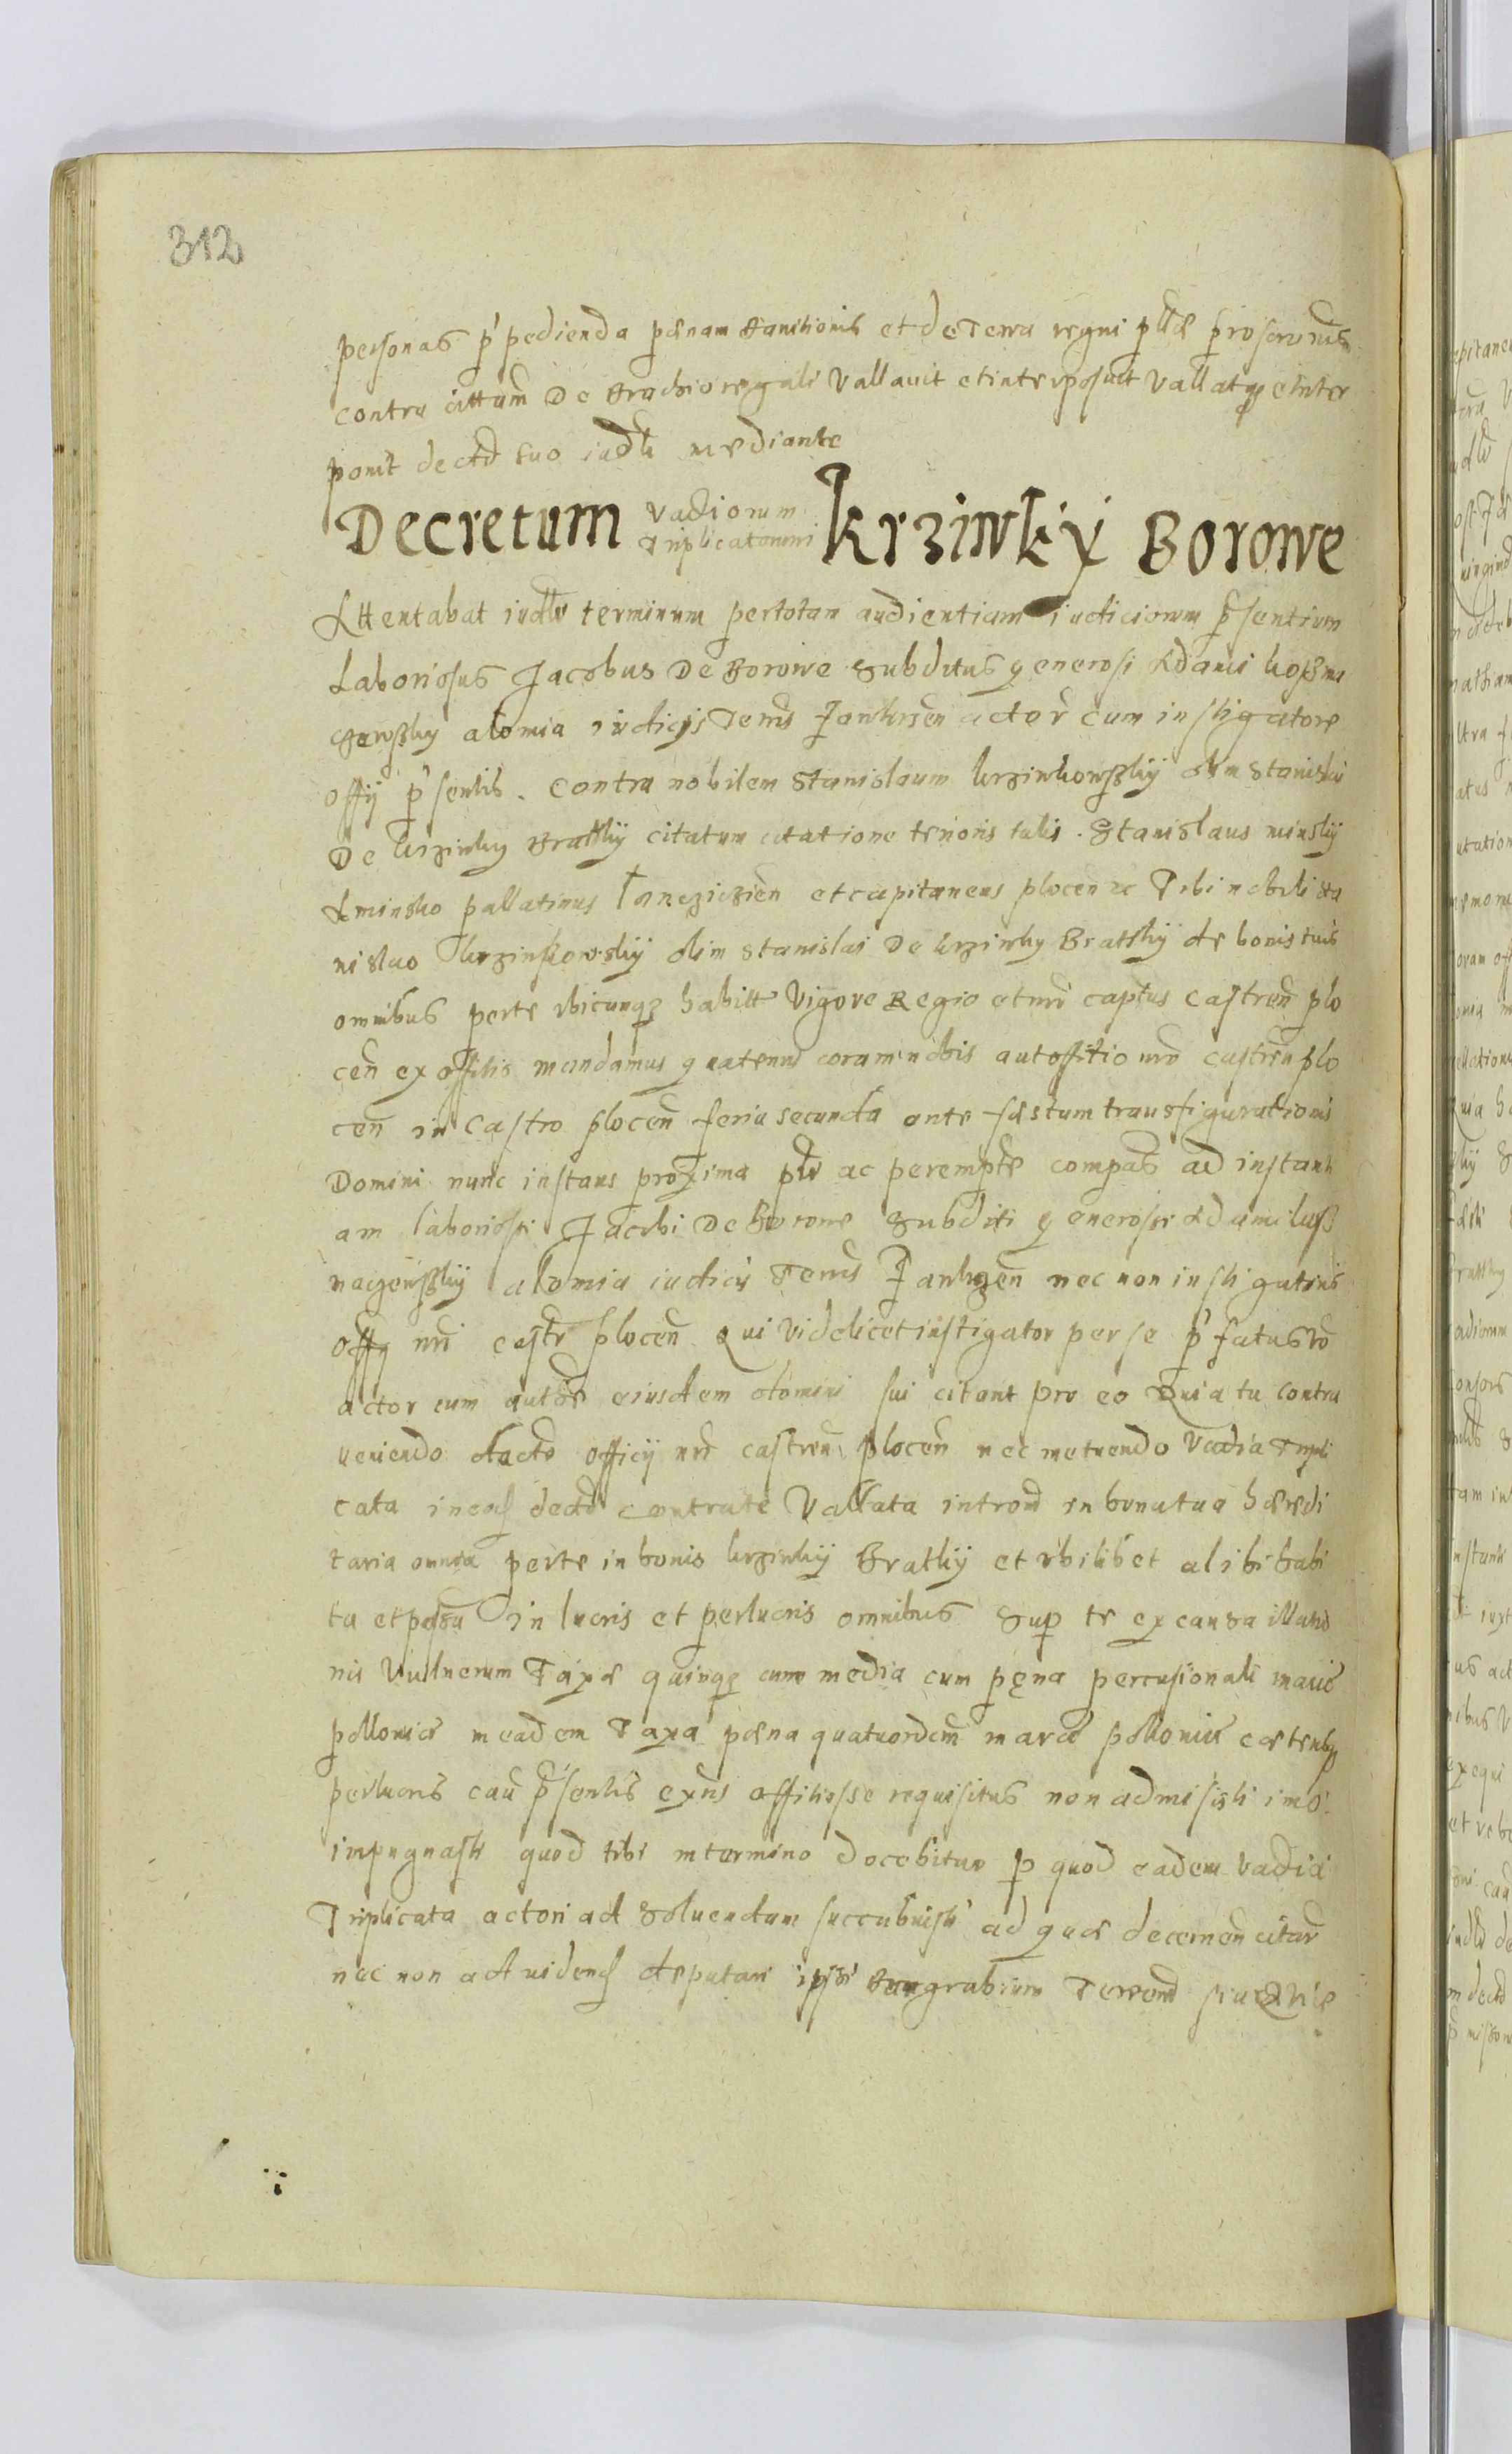 312
personas p'pedienda pœnam banitionis et de Terra regni pllæ proscrōnis
contra cittum De Brachio regali Vallauit et interposuit Vallatq et inter
ponit dectō suo iudlī mediante
Decretum Vadiorum Triplicatorum krzinkÿ Borowe
Attentabat iudlr terminum per totam audientiam iudiciorum p̄sentium
Laboriosus Jacobus De Borowe Subditus generosi Adami koßmi
czewsky alomia iudicis Terrs Zaukrzen actor cum instigatore
offÿ p'sentis. Contra nobilem Stanislaum krzinkowskÿ olim Stanislai
De krzinky Bratkÿ citatum citatione tenoris talis. Stanislaus minskÿ
A minsko pallatinus Lancziczien et capitaneus plocen zc Tibi nobili Sta
nislao krzinkowskÿ olim Stanislai De krzinky Bratkÿ de bonis tuis
omnibus perte vbicunqz habitt Vigore Regio et nri captus Castren plo
cen ex offitio mandamus quatenus coram nobis aut offitio nro castren plo
cen in Castro plocen feria secunda ante fæstum transfigurationis
Domini nunc instans proxima plr ac perempte compas ad instanti
am laboriosi Jacobi De Borowe Subditi generosi Adami koß
naczewskÿ alomia iudicis Terrs Zaukrzen nec non instigatoris
offÿ nri castr plocen Qui videlicet instigator per se p'fatus vo
actor cum autore eiusdem domini sui citant pro eo Quia tu contra
ueniendo dectō officÿ nri castren plocen nec metuendo Vadia Tripli
cata in eos dectō contra te Vallata introm in bona tua hæredi
taria omnia perte in bonis krzinkÿ Bratkÿ et vbilibet alibi habi
ta et possa in lucris et perlucris omnibus Sup te ex causa illatio
nis Vulnerum Taxæ quinqz cum media cum pęna percusionali marcs
pollonics in eadem Taxa pœna quatuordcim marcs pollonics cæterisq
perlucris cau p̄sentis exns offitiosse requisitus non admisisti imo
impugnasti quod tibi in termino docebitur p quod eadem Vadia
Triplicata actori ad Soluendum succubuisti ad quæ decernen citar
nec non ad uidens deputari ipsi